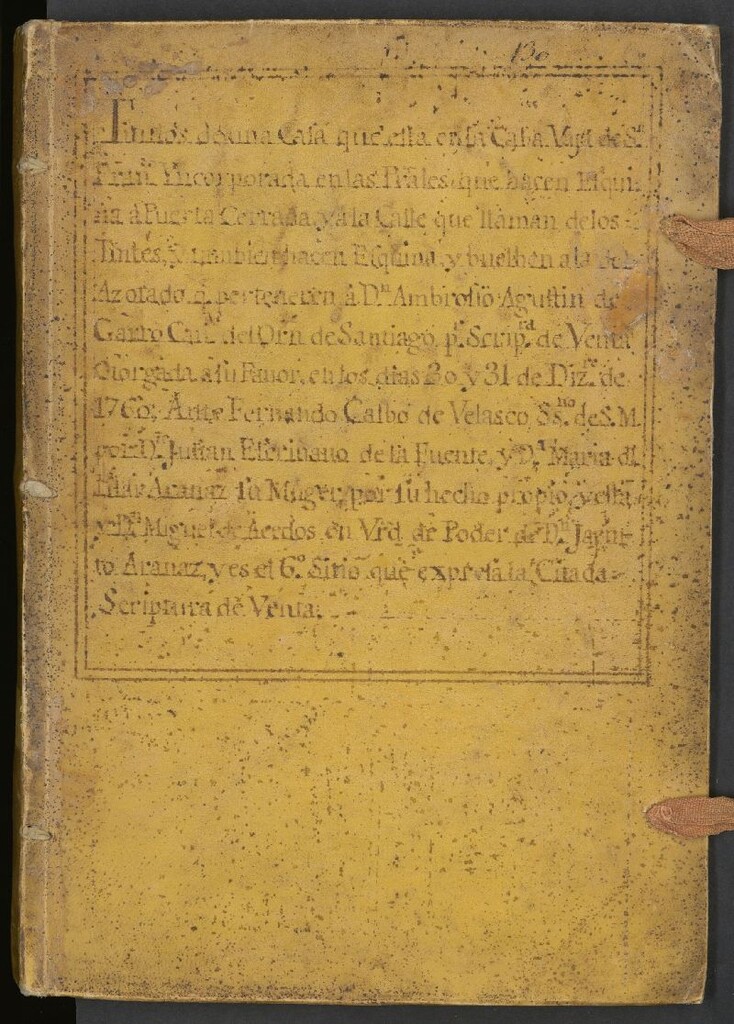 130
Titulos de una Casa que esta en la Caba Vaja de Sn.
Fran. Yncorporada en las Prales. que hacen Esqui-
na á Puerta Cerrada, y á la Calle que llaman de los
Tintes, y tambien hacen Esquina, y buelben a la del
Azotado q. pertenecen à Dn. Ambrosio Agustin de
Garro Cavo. del Orn. de Santiago, pr. Scripra. de Venta
Otorgada a su Favor, en los dias 30 y 31 de Dizre. de
1760, Ante Fernando Calbo de Velasco, Ssno. de S. M.
por Dn. Julian Escribano de la Fuente, y Da. Maria del
Pilar Aranaz su Muger, por su hecho propio, y esta
y Dn. Miguel de Acedos en Vrd. de Poder de Dn. Jayn-
to Aranaz, y es el 6º Sitio que expresa la Citada
Scriptura de Venta.